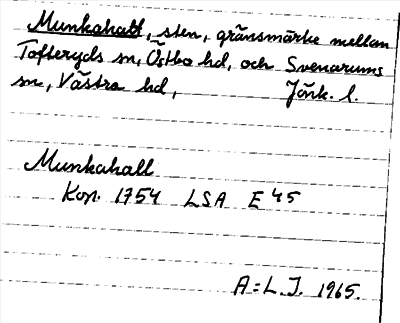 Munkahall, sten, gränsmärke mellan
Tofteryds sn, Östbo hd, och Svenarums
sn, Västra hd, Jönk. l.
Munkahall
Kon. 1754 LSA E 45
A:L.J. 1965.